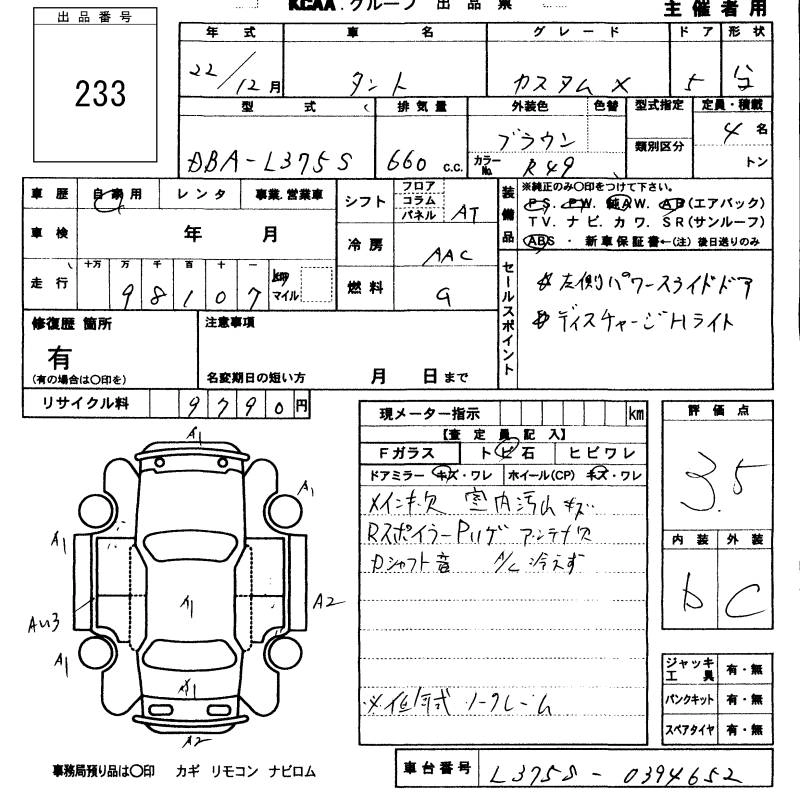 KCAA.グループ 出品票
主催者用
出品番号
233
年式 車名 グレード ドア 形状
22/12月 タント カスタムX 5
型式 排気量 外装色 色替 型式指定 定員・積載
類別区分
DBA-L375S 660 c.c. ブラウン カラーNo. R49 4名 トン
車歴 自家用 レンタ 事業.営業車
車検 年 月
走行 十万 万 千 百 十 一
98107 km マイル
シフト フロア コラム パネル AT
冷房 AAC
燃料 G
装備品
※純正のみ〇印をつけて下さい。
PS. PW. 純AW. AB(エアバック)
TV. ナビ. カワ. SR(サンルーフ)
ABS ・ 新車保証書←(注) 後日送りのみ
セールスポイント
左側パワースライドドア
ディスチャージHライト
修復歴 箇所
有
(有の場合は〇印を)
注意事項
名変期日の短い方 月 日まで
リサイクル料 9790円
現メーター指示 km
【査定員記入】
Fガラス トビ石 ヒビワレ
ドアミラー キズ・ワレ ホイール(CP) キズ・ワレ
メインキ欠 室内汚ム キズ
Rスポイラー Pハゲ アンテナ欠
Dシャフト音 A/C 冷えず
ノークレーム
評価点
3.5
内装 外装
b C
ジャッキ工具 有・無
パンクキット 有・無
スペアタイヤ 有・無
A1
A1
A1
A1
A2
A1
A1
A2
事務局預り品は〇印 カギ リモコン ナビロム
車台番号 L375S-0394652